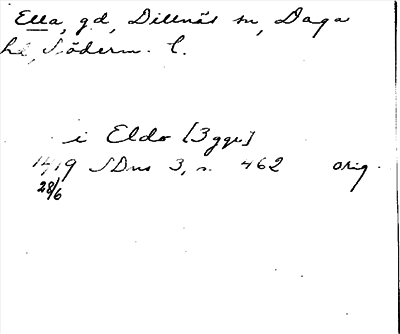 Ella, gd, Dillnäs sn, Daga
hd, Söderm. l.
i Eldo [3 ggr]
1419 SDns 3, s. 462 orig.
28/6